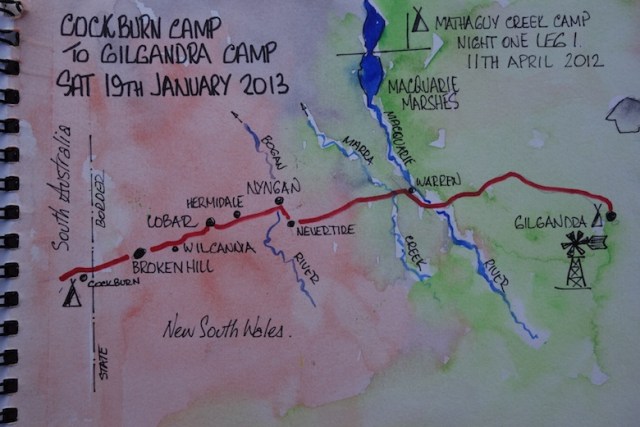 COCKBURN CAMP
TO GILGANDRA CAMP
SAT 19TH JANUARY 2013
MATHAGUY CREEK CAMP
NIGHT ONE LEG 1.
11TH APRIL 2012
MACQUARIE
MARSHES
South Australia
BORDER
STATE
BOGAN
RIVER
MARRA
CREEK
MACQUARIE
RIVER
NYNGAN
HERMIDALE
COBAR
WILCANYA
BROKEN HILL
COCKBURN
NEVERTIRE
WARREN
GILGANDRA
New South Wales.